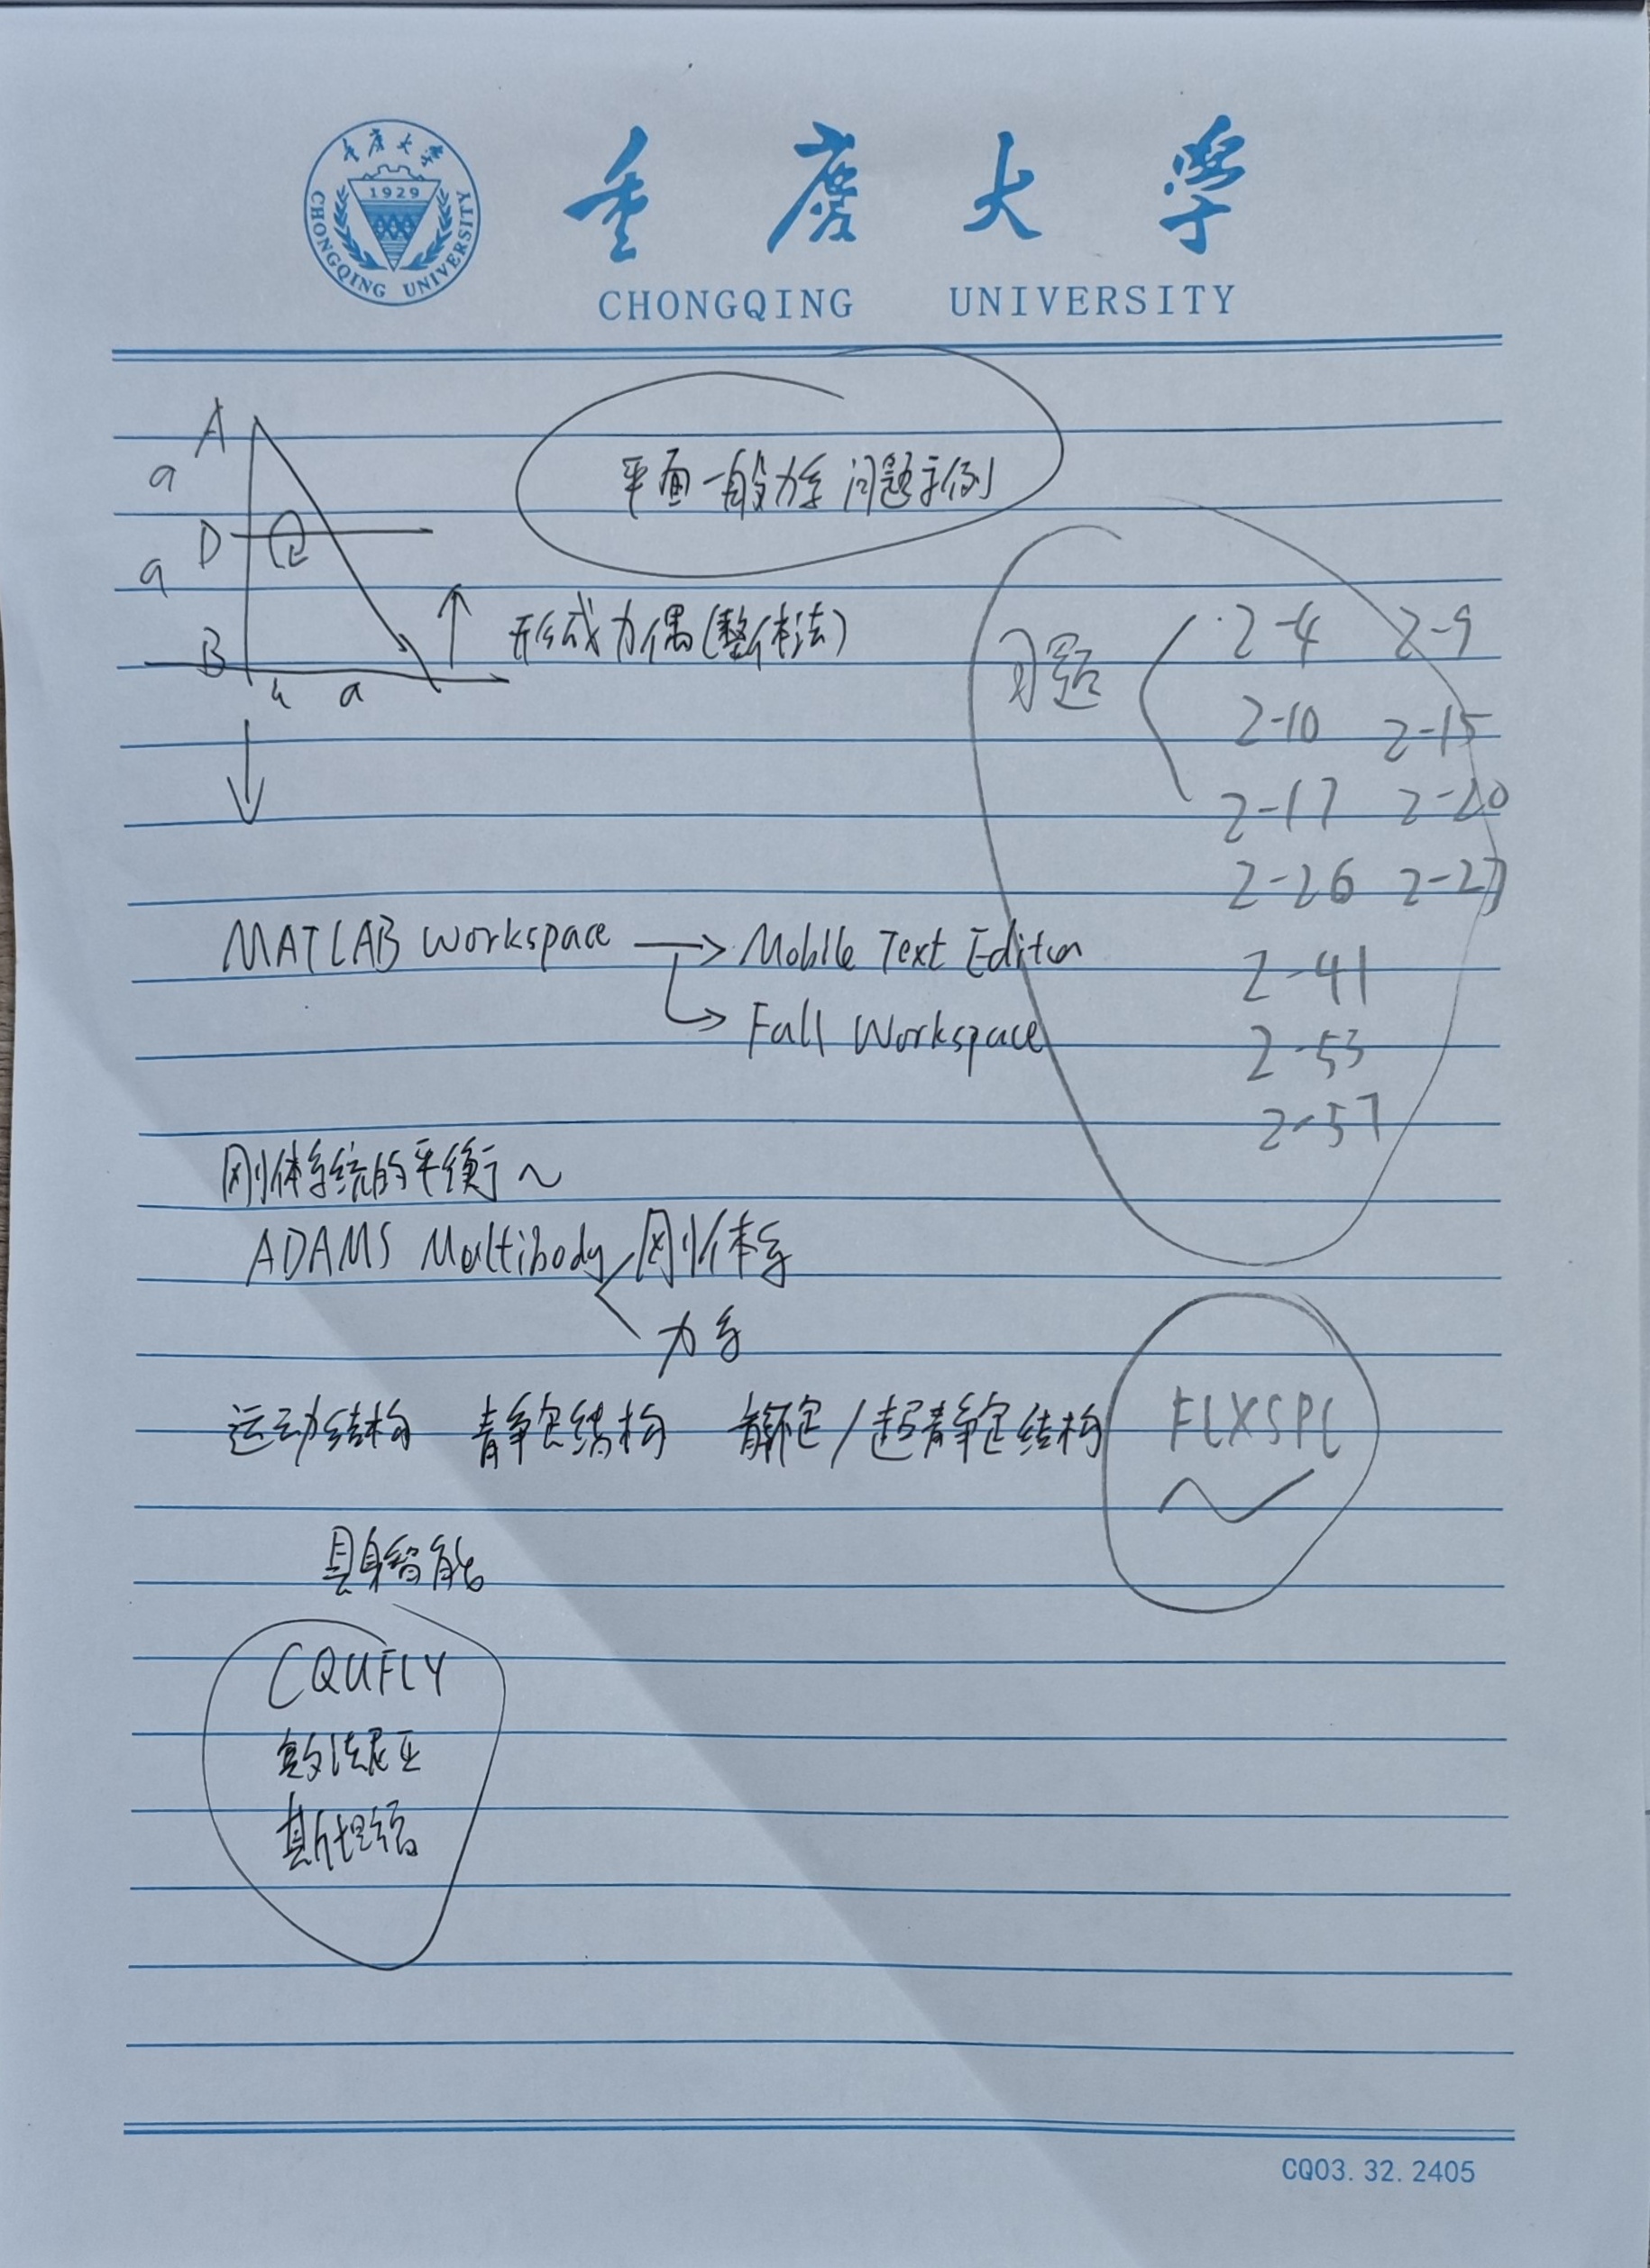 重庆大学
1929
CHONGQING UNIVERSITY
重庆大学
CHONGQING UNIVERSITY
平面一般力系问题示例
A
a
D
a
B
a
形成力偶(整体法)
习题
2-4 2-9
2-10 2-15
2-17 2-20
2-26 2-27
2-41
2-53
2-57
MATLAB Workspace → Mobile Text Editor
→ Full Workspace
刚体系统的平衡~
ADAMS Multibody 刚体系
力系
运动结构 静定结构 静不定/超静定结构
FLXSPL
具身智能
CQUFLY
斯坦福
CQ03.32.2405